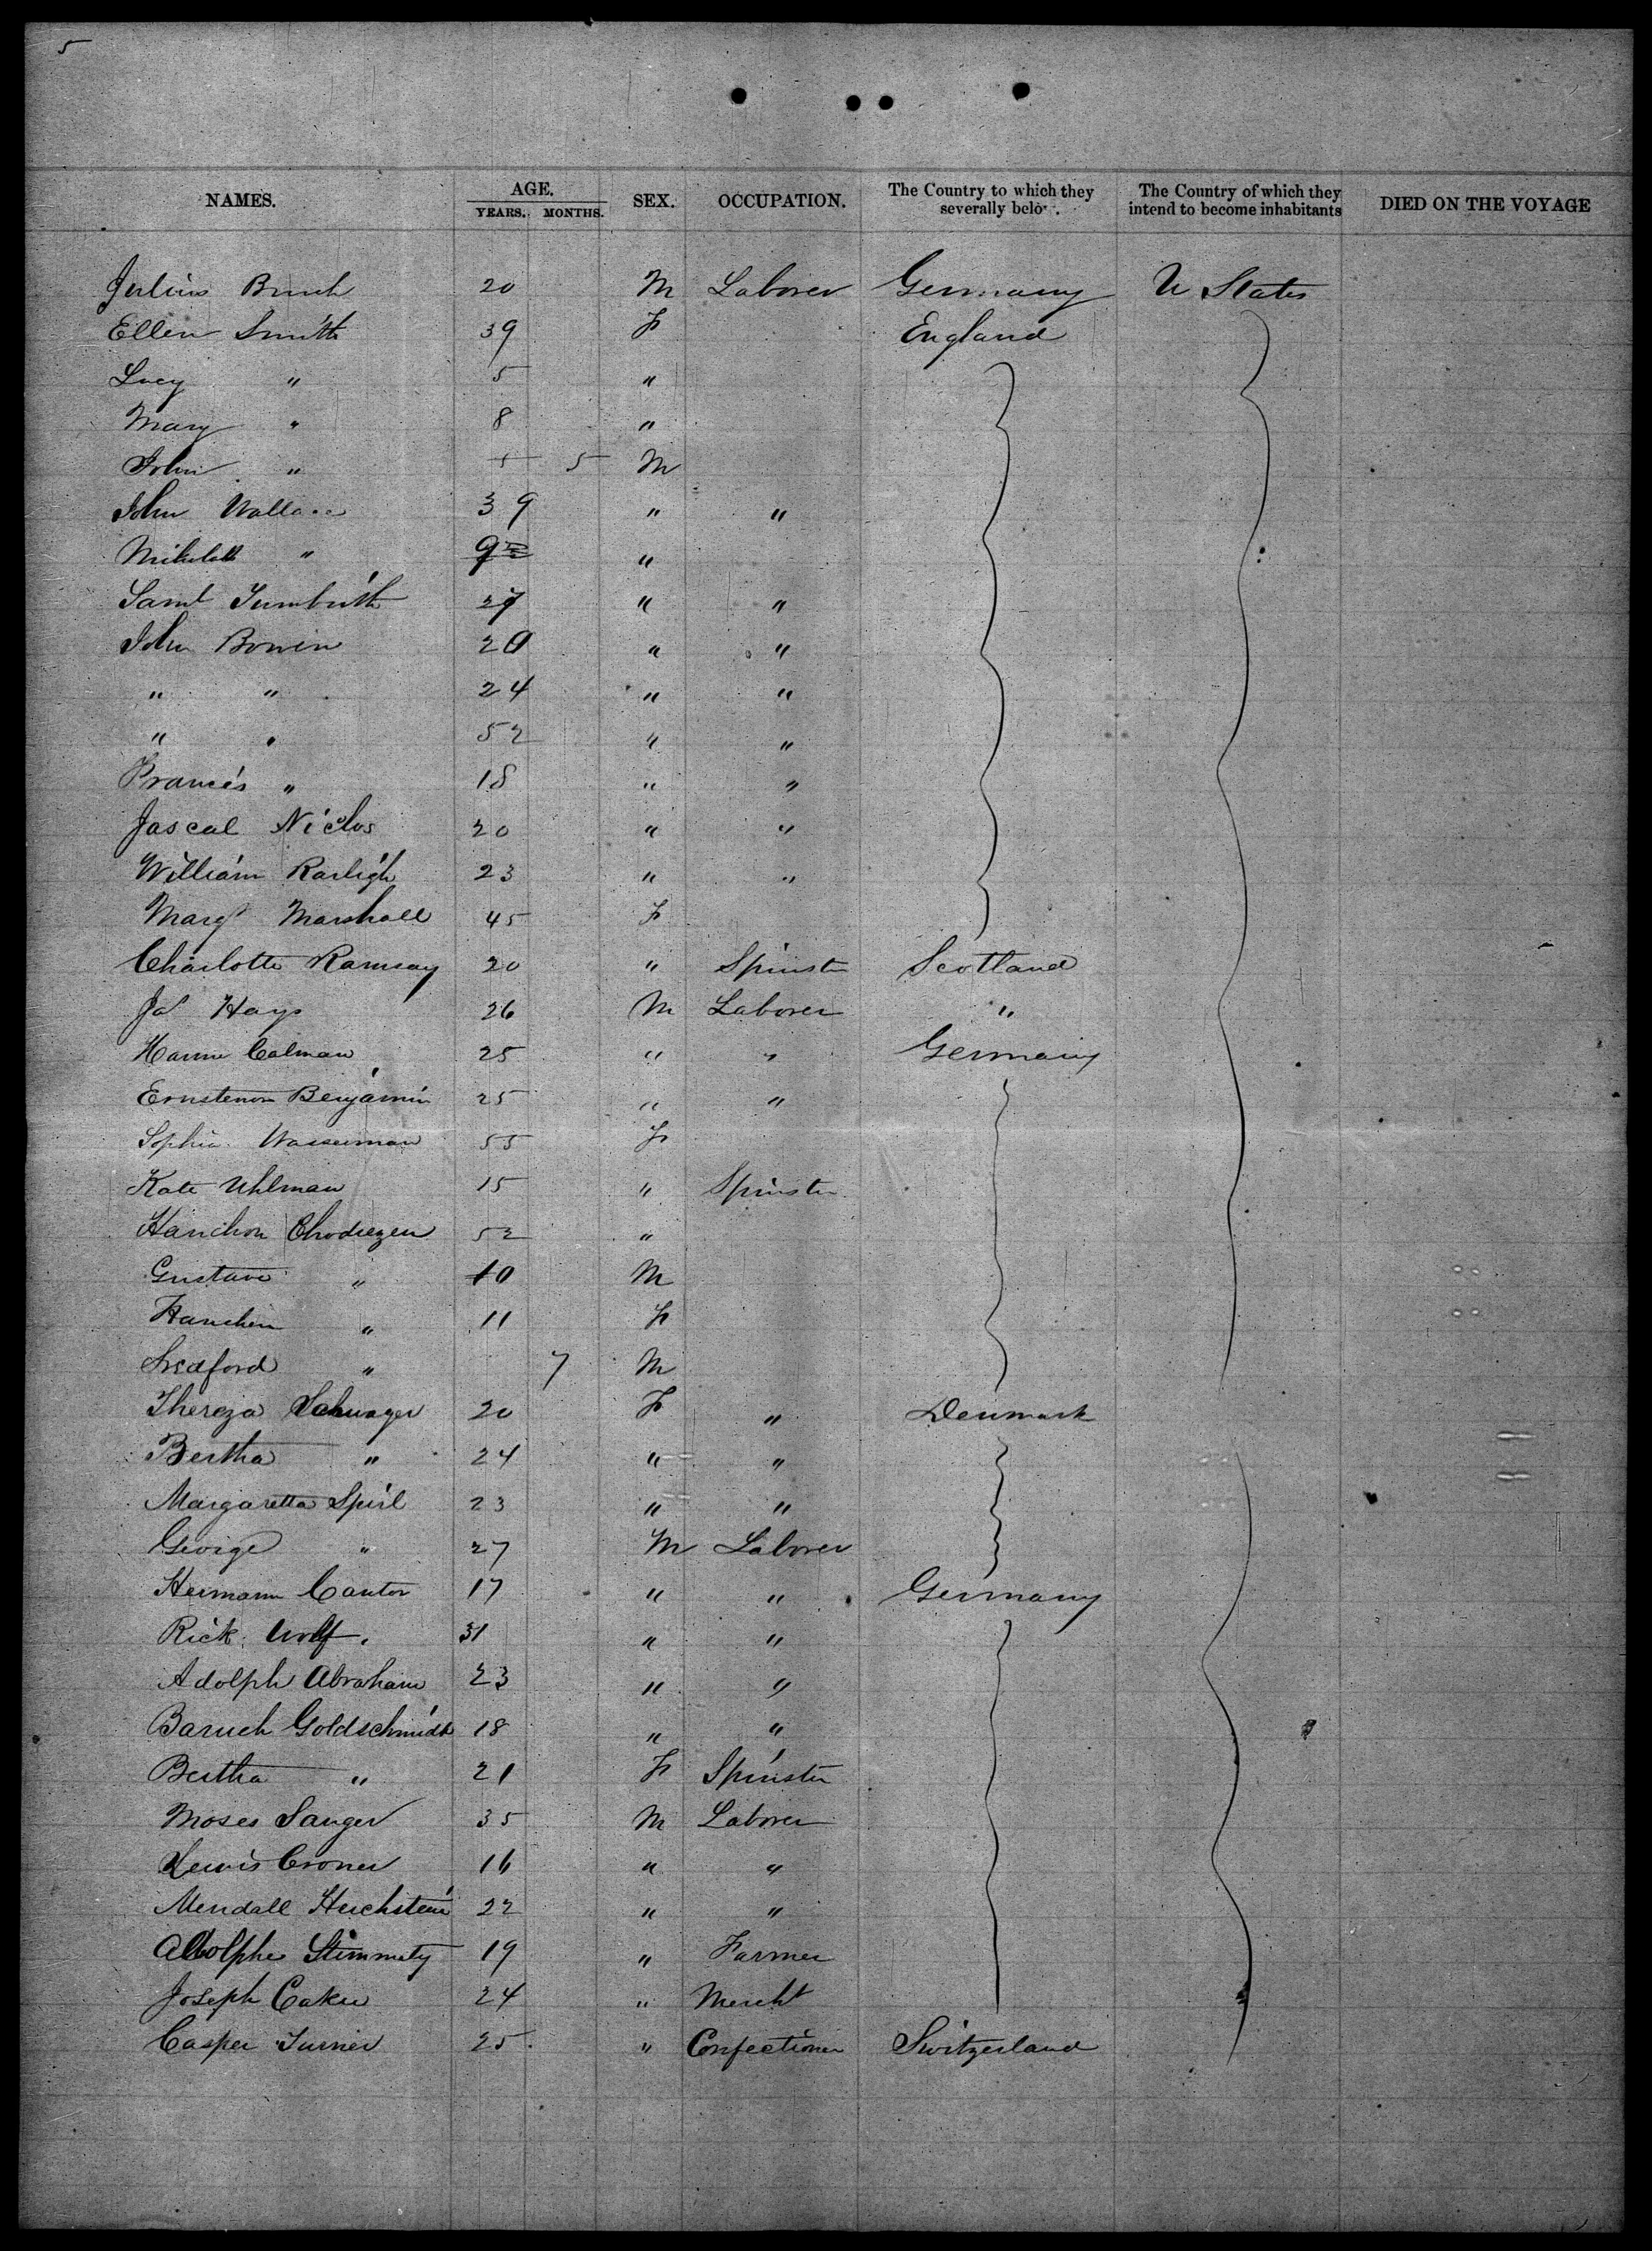 5
NAMES. AGE. YEARS. MONTHS. SEX. OCCUPATION. The Country to which they severally belo The Country of which they intend to become inhabitants DIED ON THE VOYAGE
Julius 20 M Laborer Germany U States
Ellen Smith 39 F England
Lucy " 5 "
Mary " 8 "
John " 5 M
John Wallace 39 " "
" 9 "
Saml 27 " "
John Bowen 20 " "
" " 24 " "
" " 52 " "
Francis " 18 " "
Jascal Niclos 20 " "
William Raleigh 23 " "
Margt Marshall 45 F
Charlotte Ramsay 20 " Spinster Scotland
Jas Hays 26 M Laborer "
Calman 25 " " Germany
Benjamin 25 " "
Sophia Wasserman 55 F
Kate Uhlman 15 " Spinster
Chodiezen 52 "
Gustave " 10 M
Hanchen " 11 F
" 7 M
Thereza Schwager 20 F " Denmark
Bertha " 24 " "
Margaretta Spirl 23 " "
George " 27 M Laborer
Hermann Cantor 17 " " Germany
Rick Wolf. 31 " "
Adolph Abraham 23 " "
Baruch Goldschmidt 18 " "
Bertha " 21 F Spinster
Moses Sanger 35 M Laborer
Lewis Croner 16 " "
Mendall 22 " "
Adolphe 19 " Farmer
Joseph 24 " Mercht
Casper Turner 25 " Confectioner Switzerland